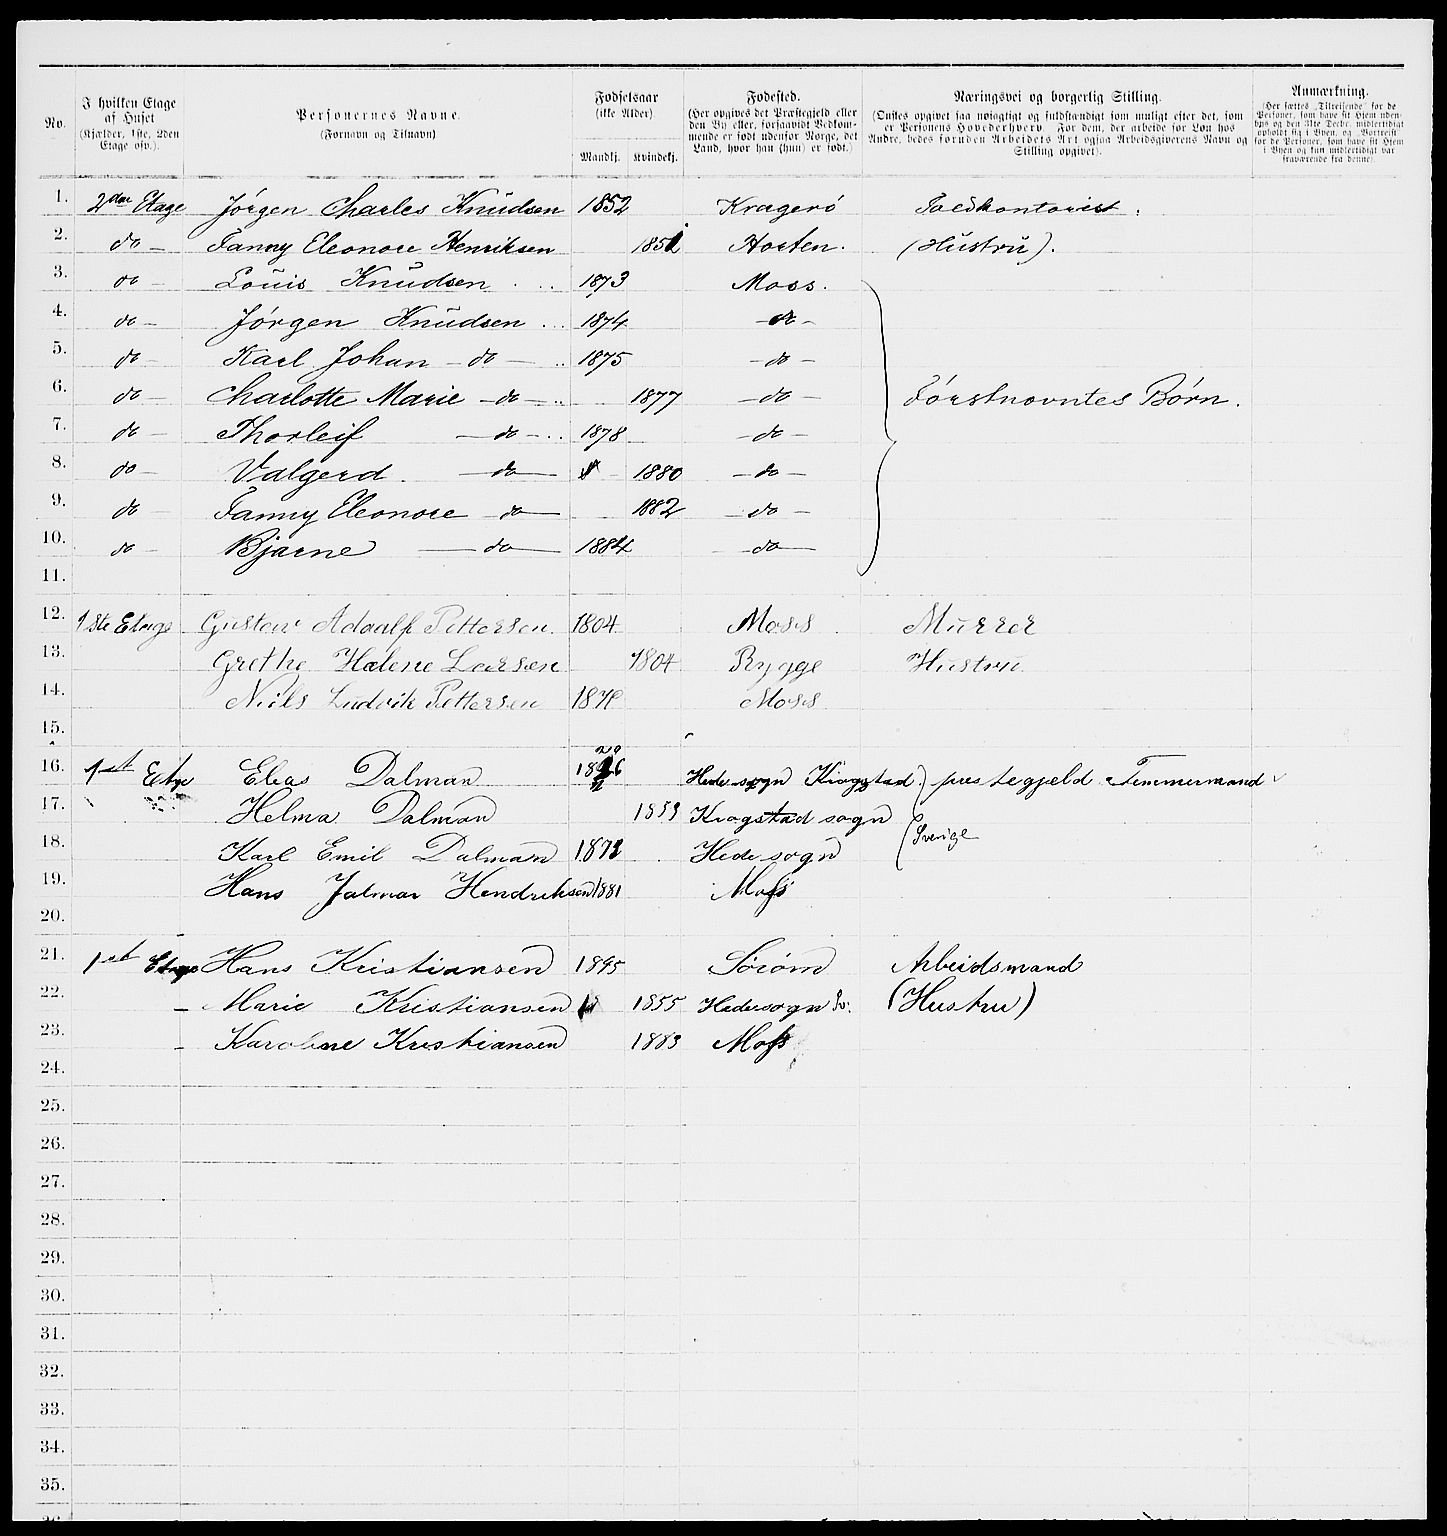 No.
I hvilken Etage af Huset (Kjælder, 1ste, 2den Etage osv.).
Personernes Navne. (Fornavn og Tilnavn)
Fødselsaar (ikke Alder). Mandkj. Kvindekj.
Fødested. (Her opgives det Præstegjeld eller den By eller, forsaavidt Vedkommende er født udenfor Norge, det Land, hvor han (hun) er født.)
Næringsvei og borgerlig Stilling. (Ønskes opgivet saa nøiagtigt og fuldstændigt som muligt efter det, som er Personens Hovederhverv. For dem, der arbeide for Løn hos Andre, bedes foruden Arbeidets Art ogsaa Arbeidsgiverens Navn og Stilling opgivet).
Anmærkning. (Her sættes „Tilreisende“ for de Personer, som have sit Hjem udenbys og den 31te Decbr. midlertidigt opholdt sig i Byen, og „Bortreist“ for de Personer, som have sit Hjem i Byen og kun midlertidigt var fraværende fra denne).
1. 2den Etage Jórgen Charles Knudsen 1852 Krageró Toldkontorist.
2. do — Fanny Eleonore Henriksen 1851 Horten. (Hustru).
3. do — Louis Knudsen 1873 Moss.
4. do — Jórgen Knudsen 1874 — do —
5. do — Karl Johan — do — 1875 — do —
6. do — Charlotte Marie — do — 1877 — do — Fórstnevntes Bórn.
7. do — Thorleif — do — 1878 — do —
8. do — Valgerd. — do — 1880 — do —
9. do — Fanny Eleonore — do — 1882 — do —
10. do — Bjarne — do — 1884 — do —
11.
12. 1ste Etage Gustav Adaalf Pettersen. 1804 Moss Murrer
13. Grethe Halene Larsen 1804 Rygge Hustru
14. Niils Ludvik Pettersen Moss
15.
16. 1st Etge Elias Dalman Hede sogn Kragstad prestegjeld Temmermand
17. Helma Dalman 1853 Kragstad sogn
18. Karl Emil Dalman Hede sogn Sverige
19. Hans Jalmar Hendriksen 1881 Moss
20.
21. 1st Etage Hans Kristiansen Sóróm Arbeidsmand
22. — Marie Kristiansen 1855 Hedesogn (Hustru)
23. — Karoline Kristiansen 1883 Moss
24.
25.
26.
27.
28.
29.
30.
31.
32.
33.
34.
35.